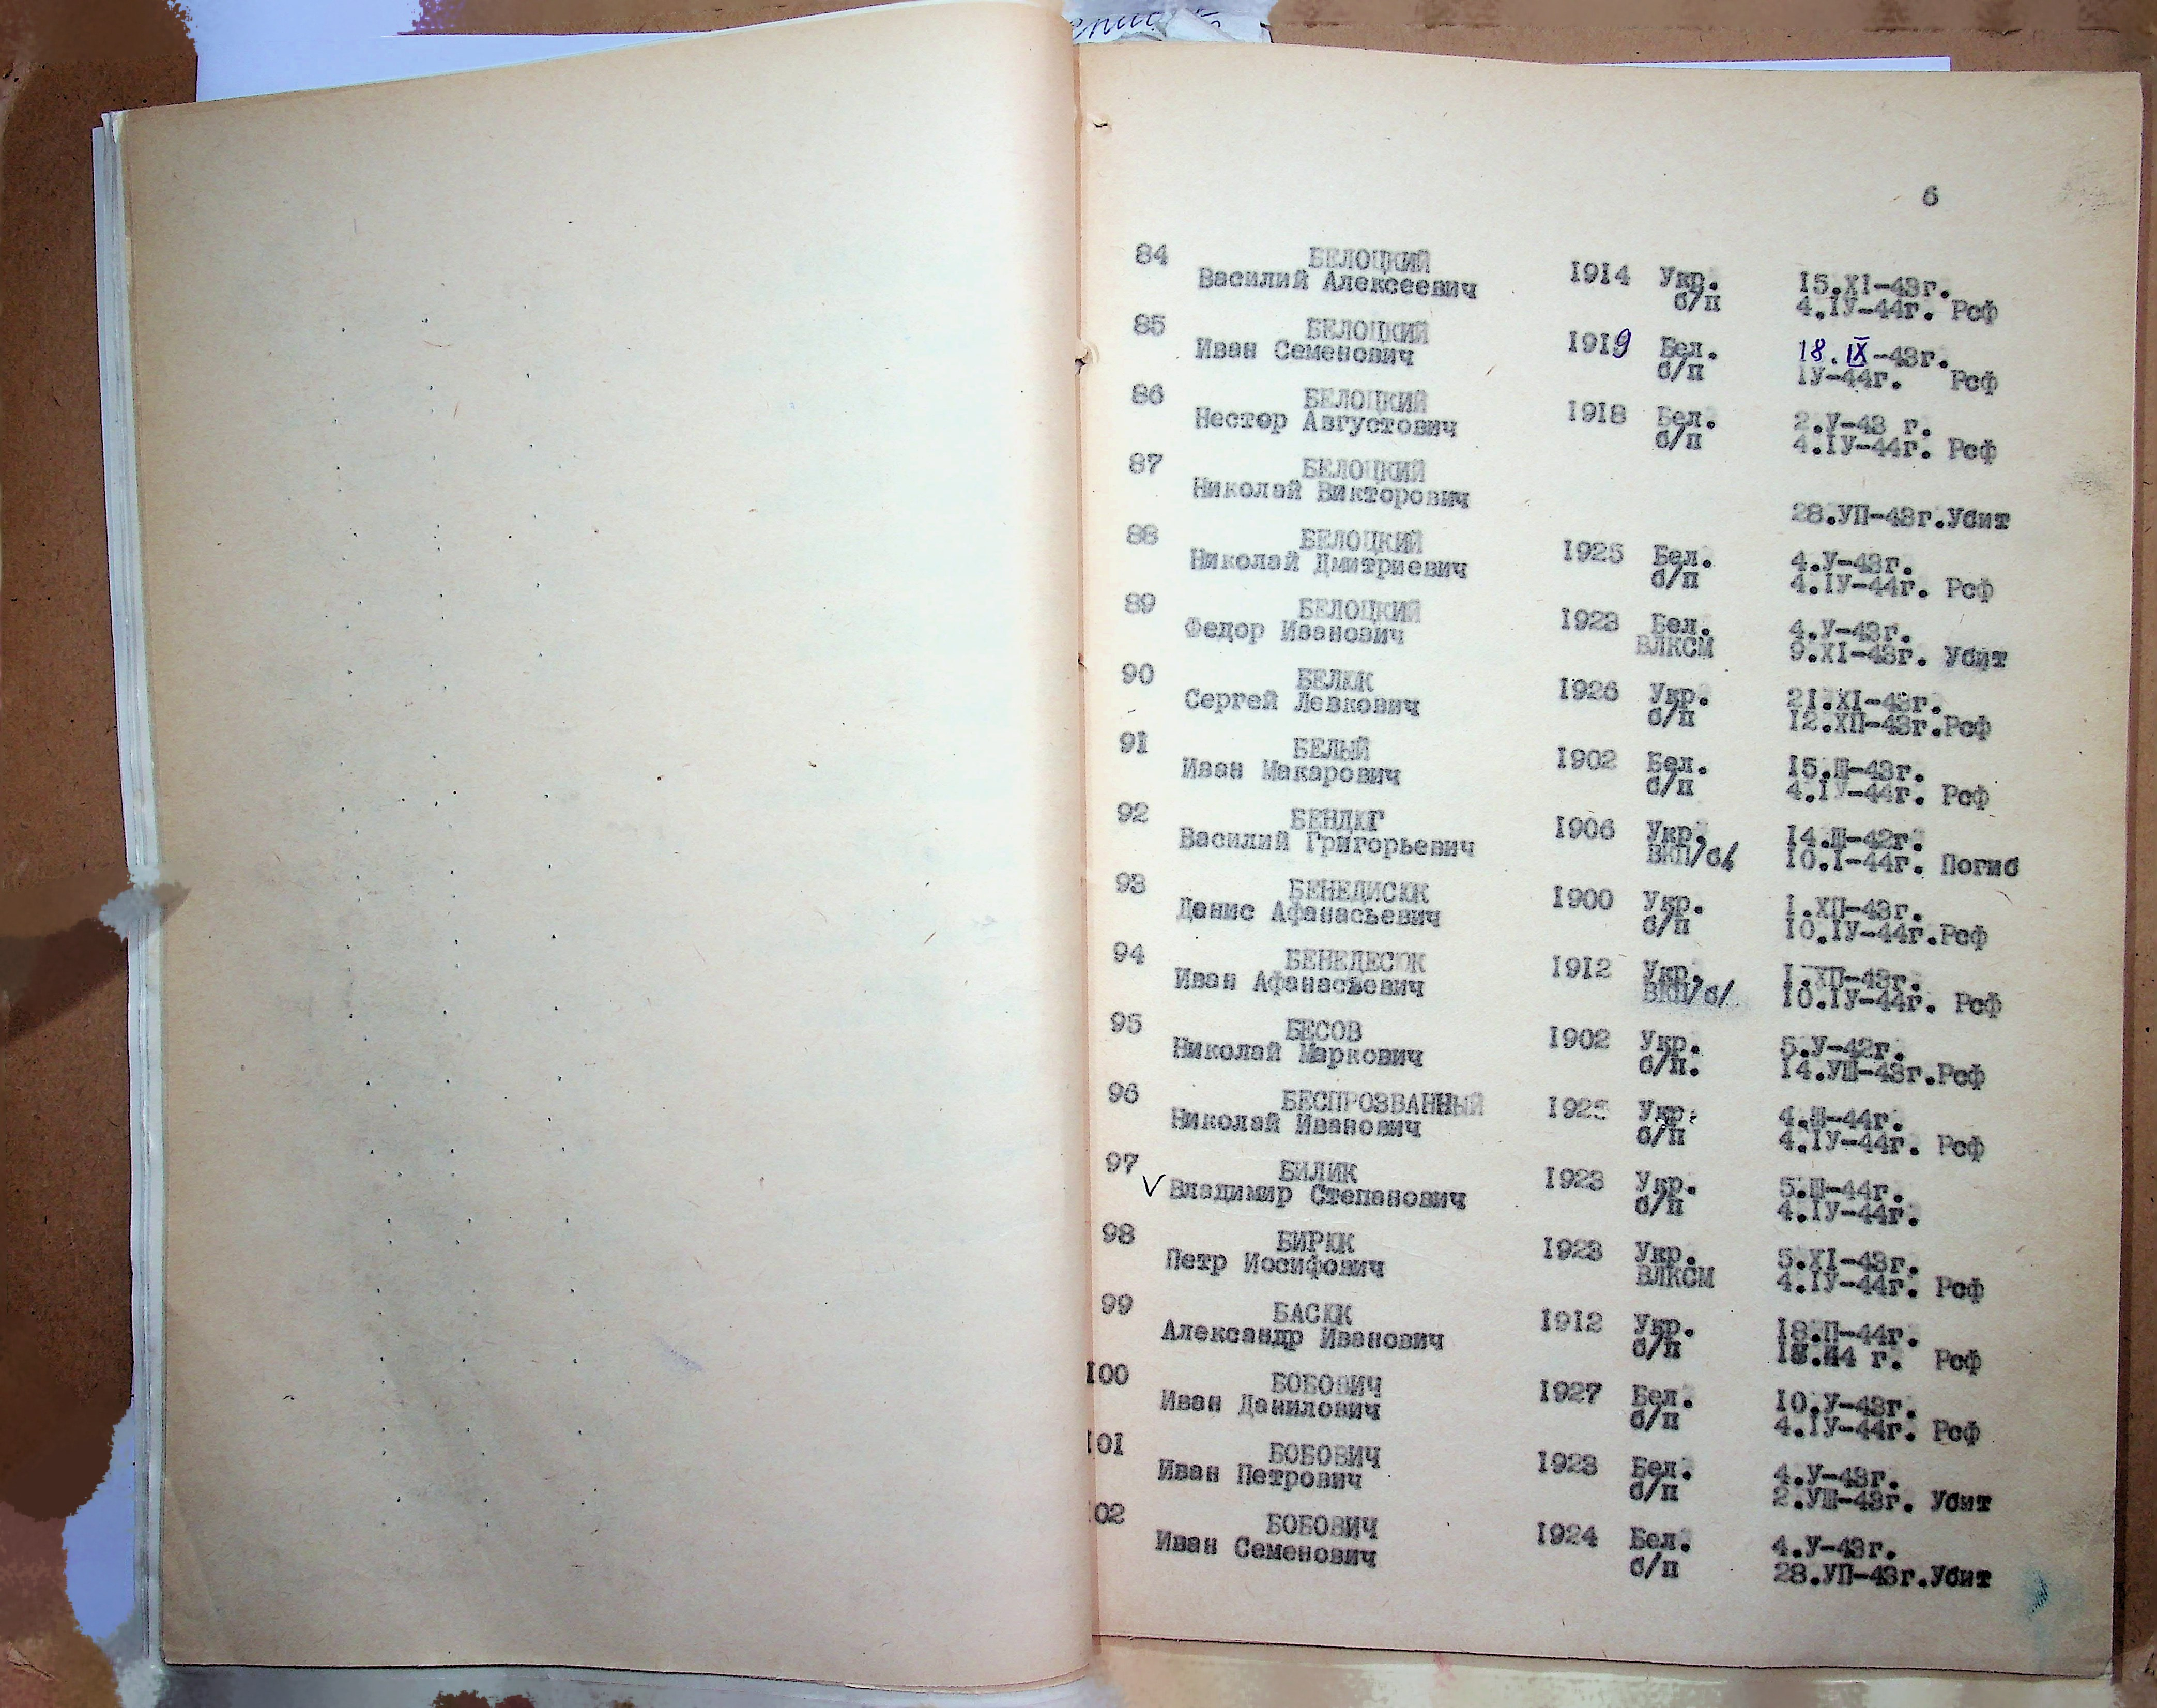 6
84 БЕЛОЦКИЙ
Василий Алексеевич 1914 Укр. 15.XI-43г.
б/п 4.IУ-44г. Рсф
85 БЕЛОЦКИЙ
Иван Семенович 1919 Бел. 18.IX-43г.
б/п IУ-44г. Рсф
86 БЕЛОЦКИЙ
Нестор Августович 1918 Бел. 2.У-43 г.
б/п 4.IУ-44г. Рсф
87 БЕЛОЦКИЙ
Николай Викторович
28.УП-43г.Убит
88 БЕЛОЦКИЙ
Николай Дмитриевич 1925 Бел. 4.У-43г.
б/п 4.IУ-44г. Рсф
89 БЕЛОЦКИЙ
Федор Иванович 1923 Бел. 4.У-43г.
ВЛКСМ 9.XI-43г. Убит
90 БЕЛЮК
Сергей Левкович 1926 Укр. 21.XI-43г.
б/п 12.ХП-43г.Рсф
91 БЕЛЫЙ
Иван Макарович 1902 Бел. 15.Ш-43г.
б/п 4.IУ-44г. Рсф
92 БЕНДЮГ
Василий Григорьевич 1906 Укр. 14.Ш-42г.
ВКП/б/ 10.I-44г. Погиб
93 БЕНЕДИСЮК
Денис Афанасьевич 1900 Укр. 1.ХП-43г.
б/п 10.IУ-44г.Рсф
94 БЕНЕДЕСЮК
Иван Афанасьевич 1912 Укр. 1.ХП-43г.
ВКП/б/ 10.IУ-44г. Рсф
95 БЕСОВ
Николай Маркович 1902 Укр. 5.У-42г.
б/п. 14.УШ-43г.Рсф
96 БЕСПРОЗВАННЫЙ
Николай Иванович 1925 Укр. 4.Ш-44г.
б/п 4.IУ-44г. Рсф
97 БИЛИК
V Владимир Степанович 1923 Укр. 5.Ш-44г.
б/п 4.IУ-44г.
98 БИРЮК
Петр Иосифович 1923 Укр. 5.XI-43г.
ВЛКСМ 4.IУ-44г. Рсф
99 БАСЮК
Александр Иванович 1912 Укр. 18.П-44г.
б/п г. Рсф
100 БОБОВИЧ
Иван Данилович 1927 Бел. 10.У-43г.
б/п 4.IУ-44г. Рсф
101 БОБОВИЧ
Иван Петрович 1923 Бел. 4.У-43г.
б/п 2.УШ-43г. Убит
02 БОБОВИЧ
Иван Семенович 1924 Бел. 4.У-43г.
б/п 28.УП-43г.Убит